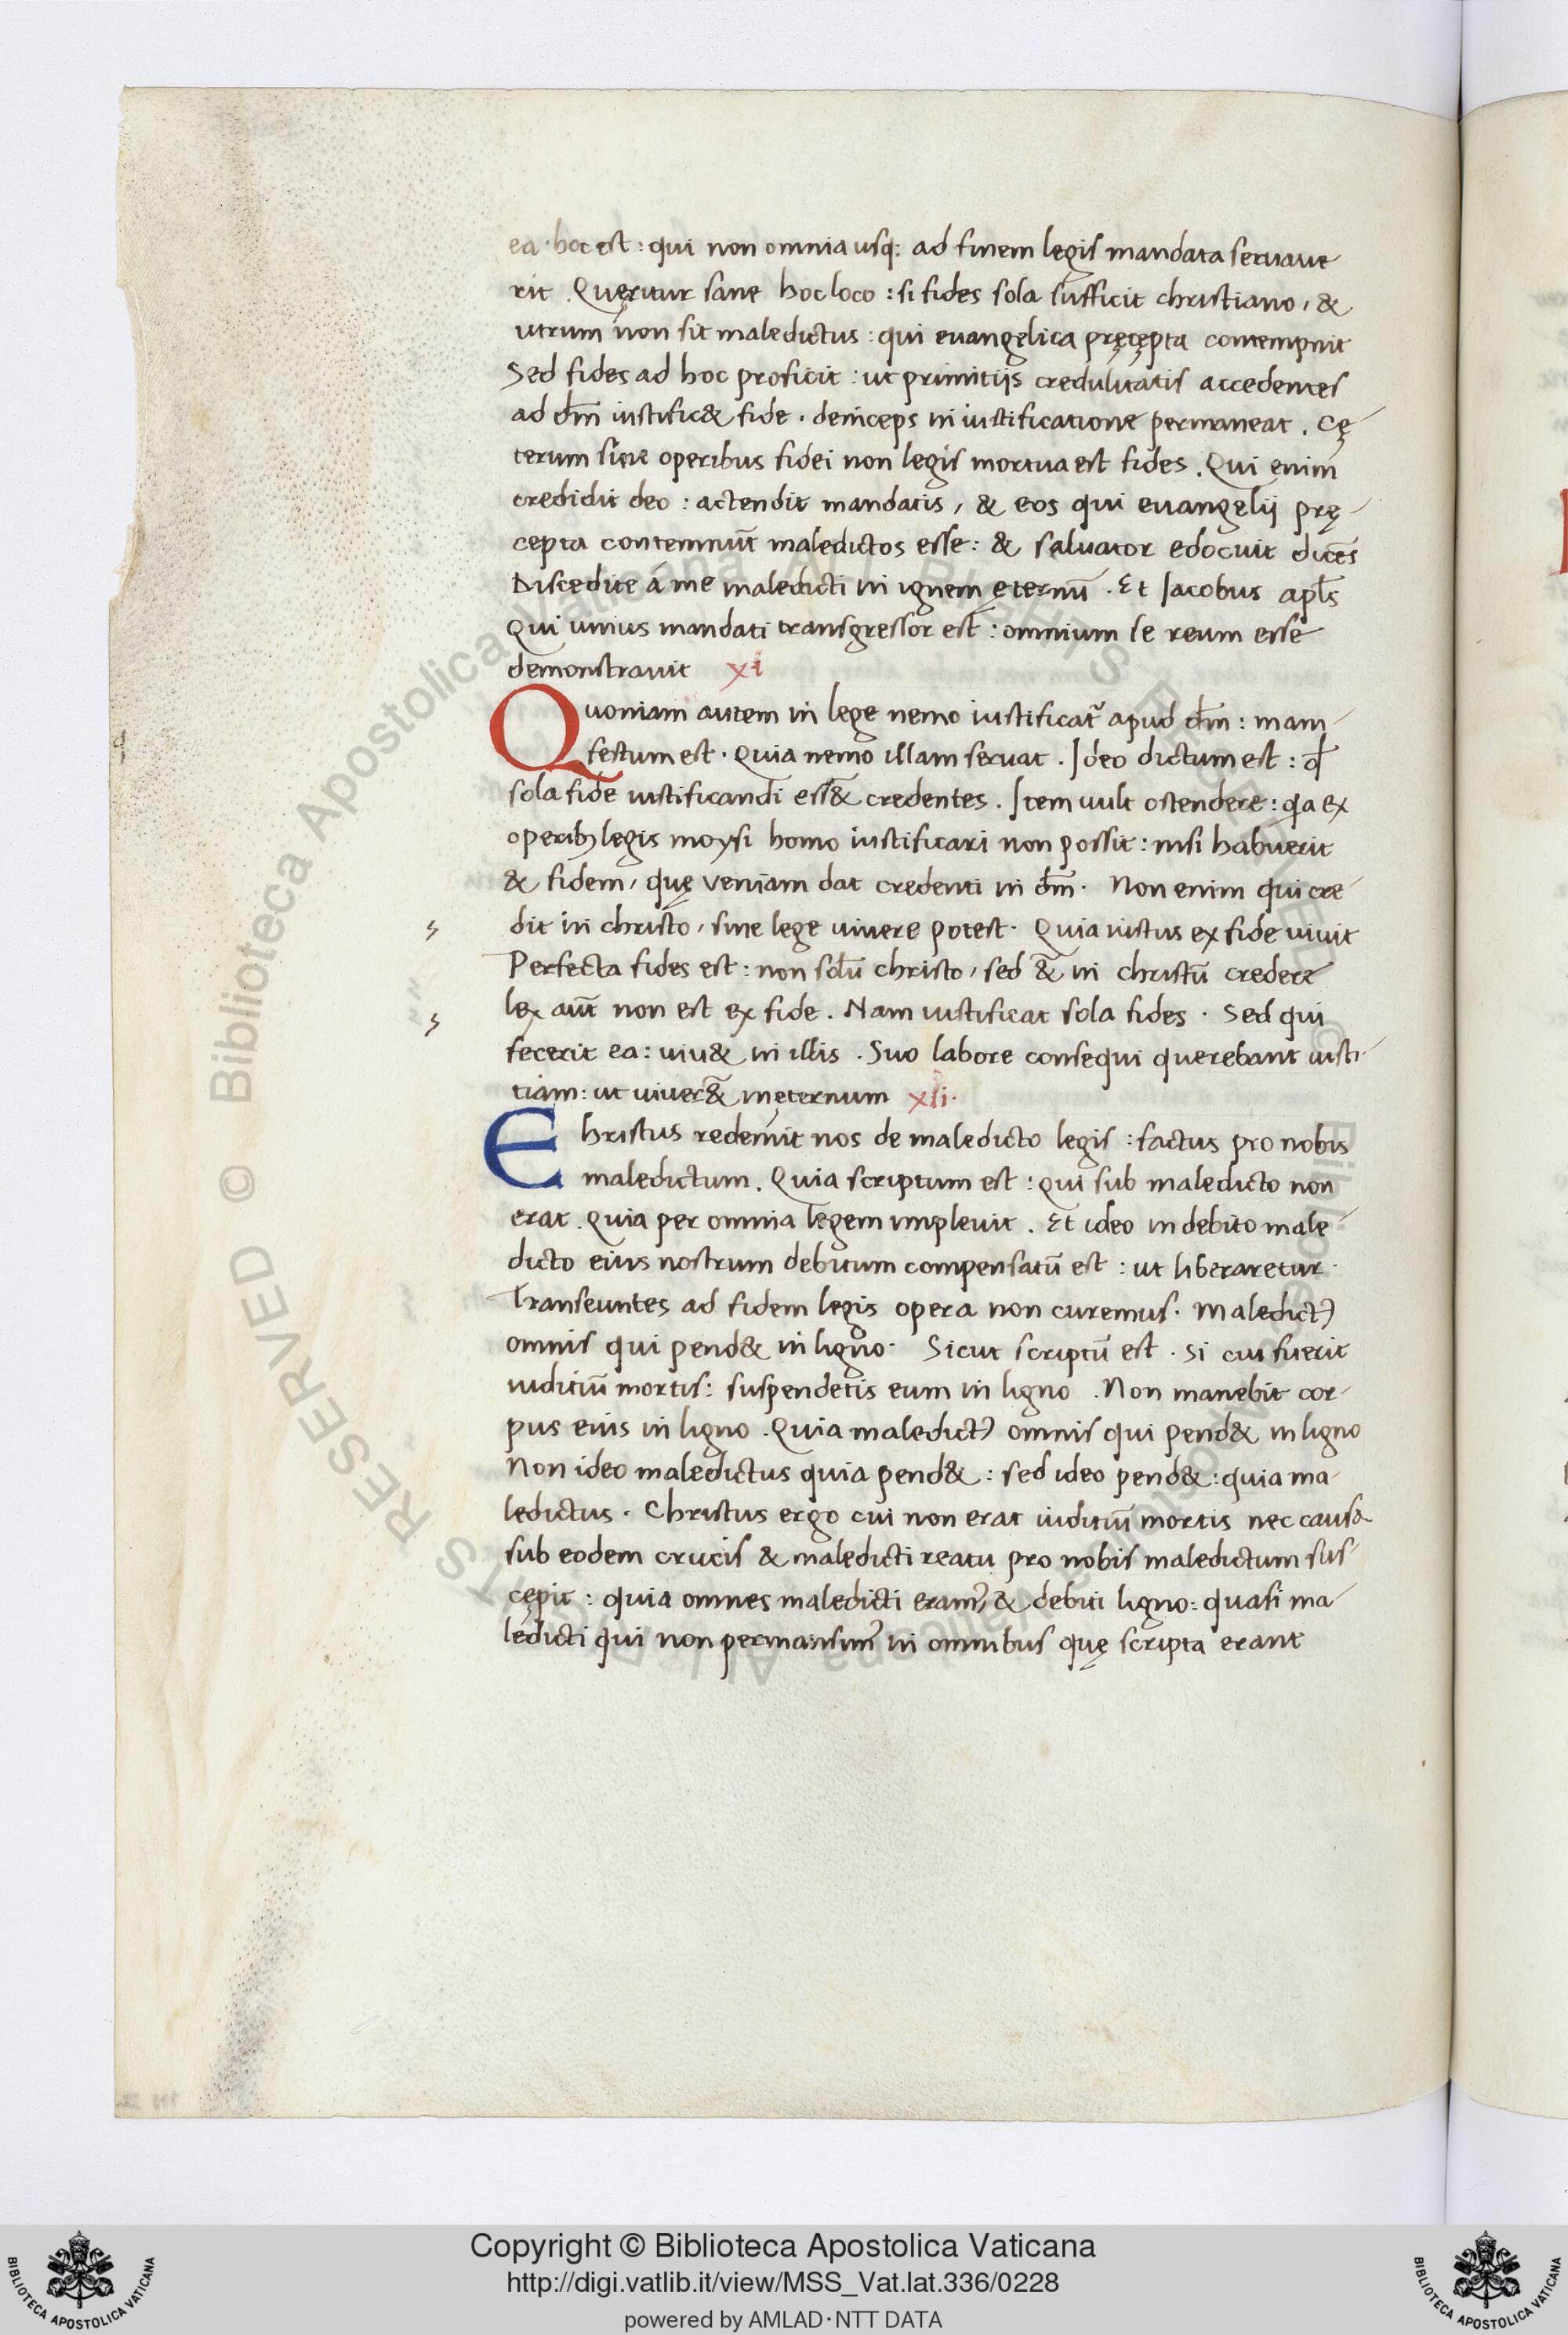 ea · hoc est : qui non omnia usq; ad finem legis mandata servaue
rit . Queritur sane hoc loco : si fides sola sufficit christiano , &
utrum non sit maledictus : qui euangelica pręcępta contempnit
Sed fides ad hoc proficit : ut primitijs credulitatis accedentes
ad dm̄ iustific& fide · deinceps in iustificatione permaneat . Cę-
terum sine operibus fidei non legis mortua est fides . Qui enim
credidit deo : actendit mandatis , & eos qui euangelij prę-
cepta contemnūt maledictos esse : & saluator edocuit dicēs
Discedite á me maledicti in ignem ęternū · Et Jacobus apl̄s
Qui unius mandati transgressor est : omnium se reum esse
demonstrauit xi
Quoniam autem in lege nemo iustificat᷑ apud dm̄ : mani-
festum est · Quia nemo illam seruat . Ideo dictum est : qđ
sola fide iustificandi ess& credentes . Item uult ostendere : qa ex
operibꝫ legis moysi homo iustificari non possit : nisi habuerit
& fidem , quę veniam dat credenti in dm̄ · Non enim qui cre-
dit in christo , sine lege uiuere potest · Quia iustus ex fide uiuit
Perfecta fides est : non solū christo , sed &̄ in christū credere
lex aūt non est ex fide . Nam iustificat sola fides · Sed qui
fecerit ea : uiu& in illis . Suo labore consequi querebant iusti-
tiam : ut uiuer&̄ in ęternum xii·
Christus redemit nos de maledicto legis : factus pro nobis
maledictum . Quia scriptum est : qui sub maledicto non
erat . Quia per omnia legem impleuit . Et ideo indebito male-
dicto eius nostrum debitum compensatū est : ut liberaretur ·
Transeuntes ad fidem legis opera non curemus · Maledictꝰ
omnis qui pend& in ligno · Sicut scriptū est . Si cui fuerit
iuditiū mortis : suspendetis eum in ligno . Non manebit cor-
pus eius in ligno . Quia maledictꝰ omnis qui pend& in ligno
Non ideo maledictus quia pend& : sed ideo pend& : quia ma-
ledictus · Christus ergo cui non erat iuditiū mortis nec causa
sub eodem crucis & maledicti reatu pro nobis maledictum sus-
cępit : quia omnes maledicti eramꝰ , & debiti ligno : quasi ma-
ledicti qui non permansimꝰ in omnibus quę scripta erant
© Biblioteca Apostolica Vaticana
Copyright © Biblioteca Apostolica Vaticana
http://digi.vatlib.it/view/MSS_Vat.lat.336/0228
powered by AMLAD·NTT DATA
BIBLIOTECA APOSTOLICA VATICANA
BIBLIOTECA APOSTOLICA VATICANA